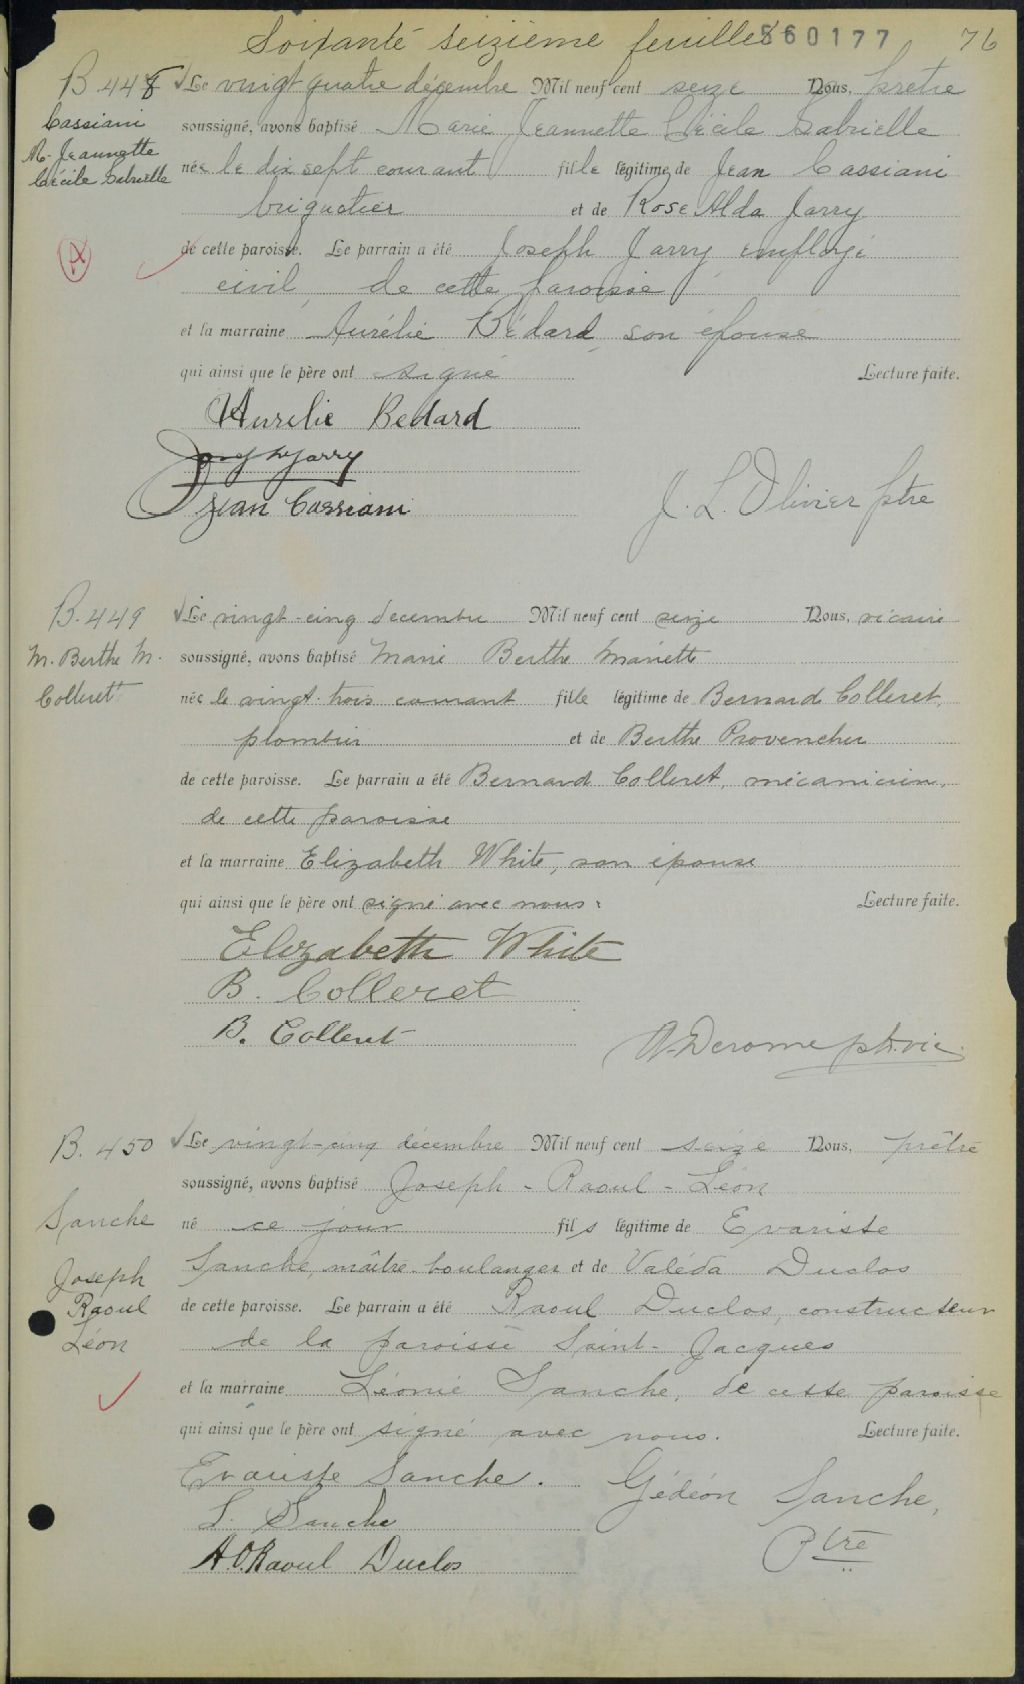 Soixante seizième feuillet 560177 76
B 448 Le vingt quatre décembre Mil neuf cent seize Nous, prêtre
Cassiani
soussigné, avons baptisé Marie Jeannette Cécile Gabrielle
M. Jeannette
Cécile Gabrielle
née le dix sept courant fille légitime de Jean Cassiani
briquetier et de Rose Alda Jarry
A
de cette paroisse. Le parrain a été Joseph Jarry employé
civil, de cette paroisse
et la marraine Aurélie Bédard, son épouse
qui ainsi que le père ont signé Lecture faite.
Aurelie Bedard
Joseph Jarry
Jean Cassiani
J. L. Olivier ptre
B. 449 Le vingt-cinq decembre Mil neuf cent seize Nous, vicaire
M. Berthe M.
soussigné, avons baptisé Marie Berthe Mariette
Colleret
née le vingt-trois courant fille légitime de Bernard Colleret,
plombier et de Berthe Provencher
de cette paroisse. Le parrain a été Bernard Colleret, mécanicien,
de cette paroisse
et la marraine Elizabeth White, son épouse
qui ainsi que le père ont signé avec nous. Lecture faite.
Elizabeth White
B. Colleret
B. Colleret
A. Derome ptr. vic.
B. 450 Le vingt-cinq décembre Mil neuf cent seize Nous, prêtre
soussigné, avons baptisé Joseph - Raoul - Léon
Sanche
né ce jour fils légitime de Evariste
Joseph
Sanche, maître-boulanger et de Valéda Duclos
Raoul
de cette paroisse. Le parrain a été Raoul Duclos, constructeur
Léon
de la paroisse Saint-Jacques
et la marraine Léonie Sanche, de cette paroisse
qui ainsi que le père ont signé avec nous. Lecture faite.
Evariste Sanche.
L. Sanche
A.O. Raoul Duclos
Gédéon Sanche,
Ptre